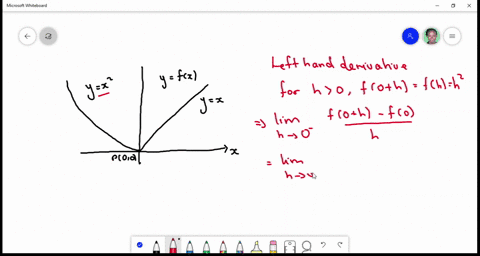 Microsoft Whiteboard
y=x²
y=f(x)
y=x
P(0,0)
x
Left hand derivative
for h>0, f(0+h)=f(h)=h²
=> lim h→0⁻ f(0+h)-f(0) / h
= lim h→